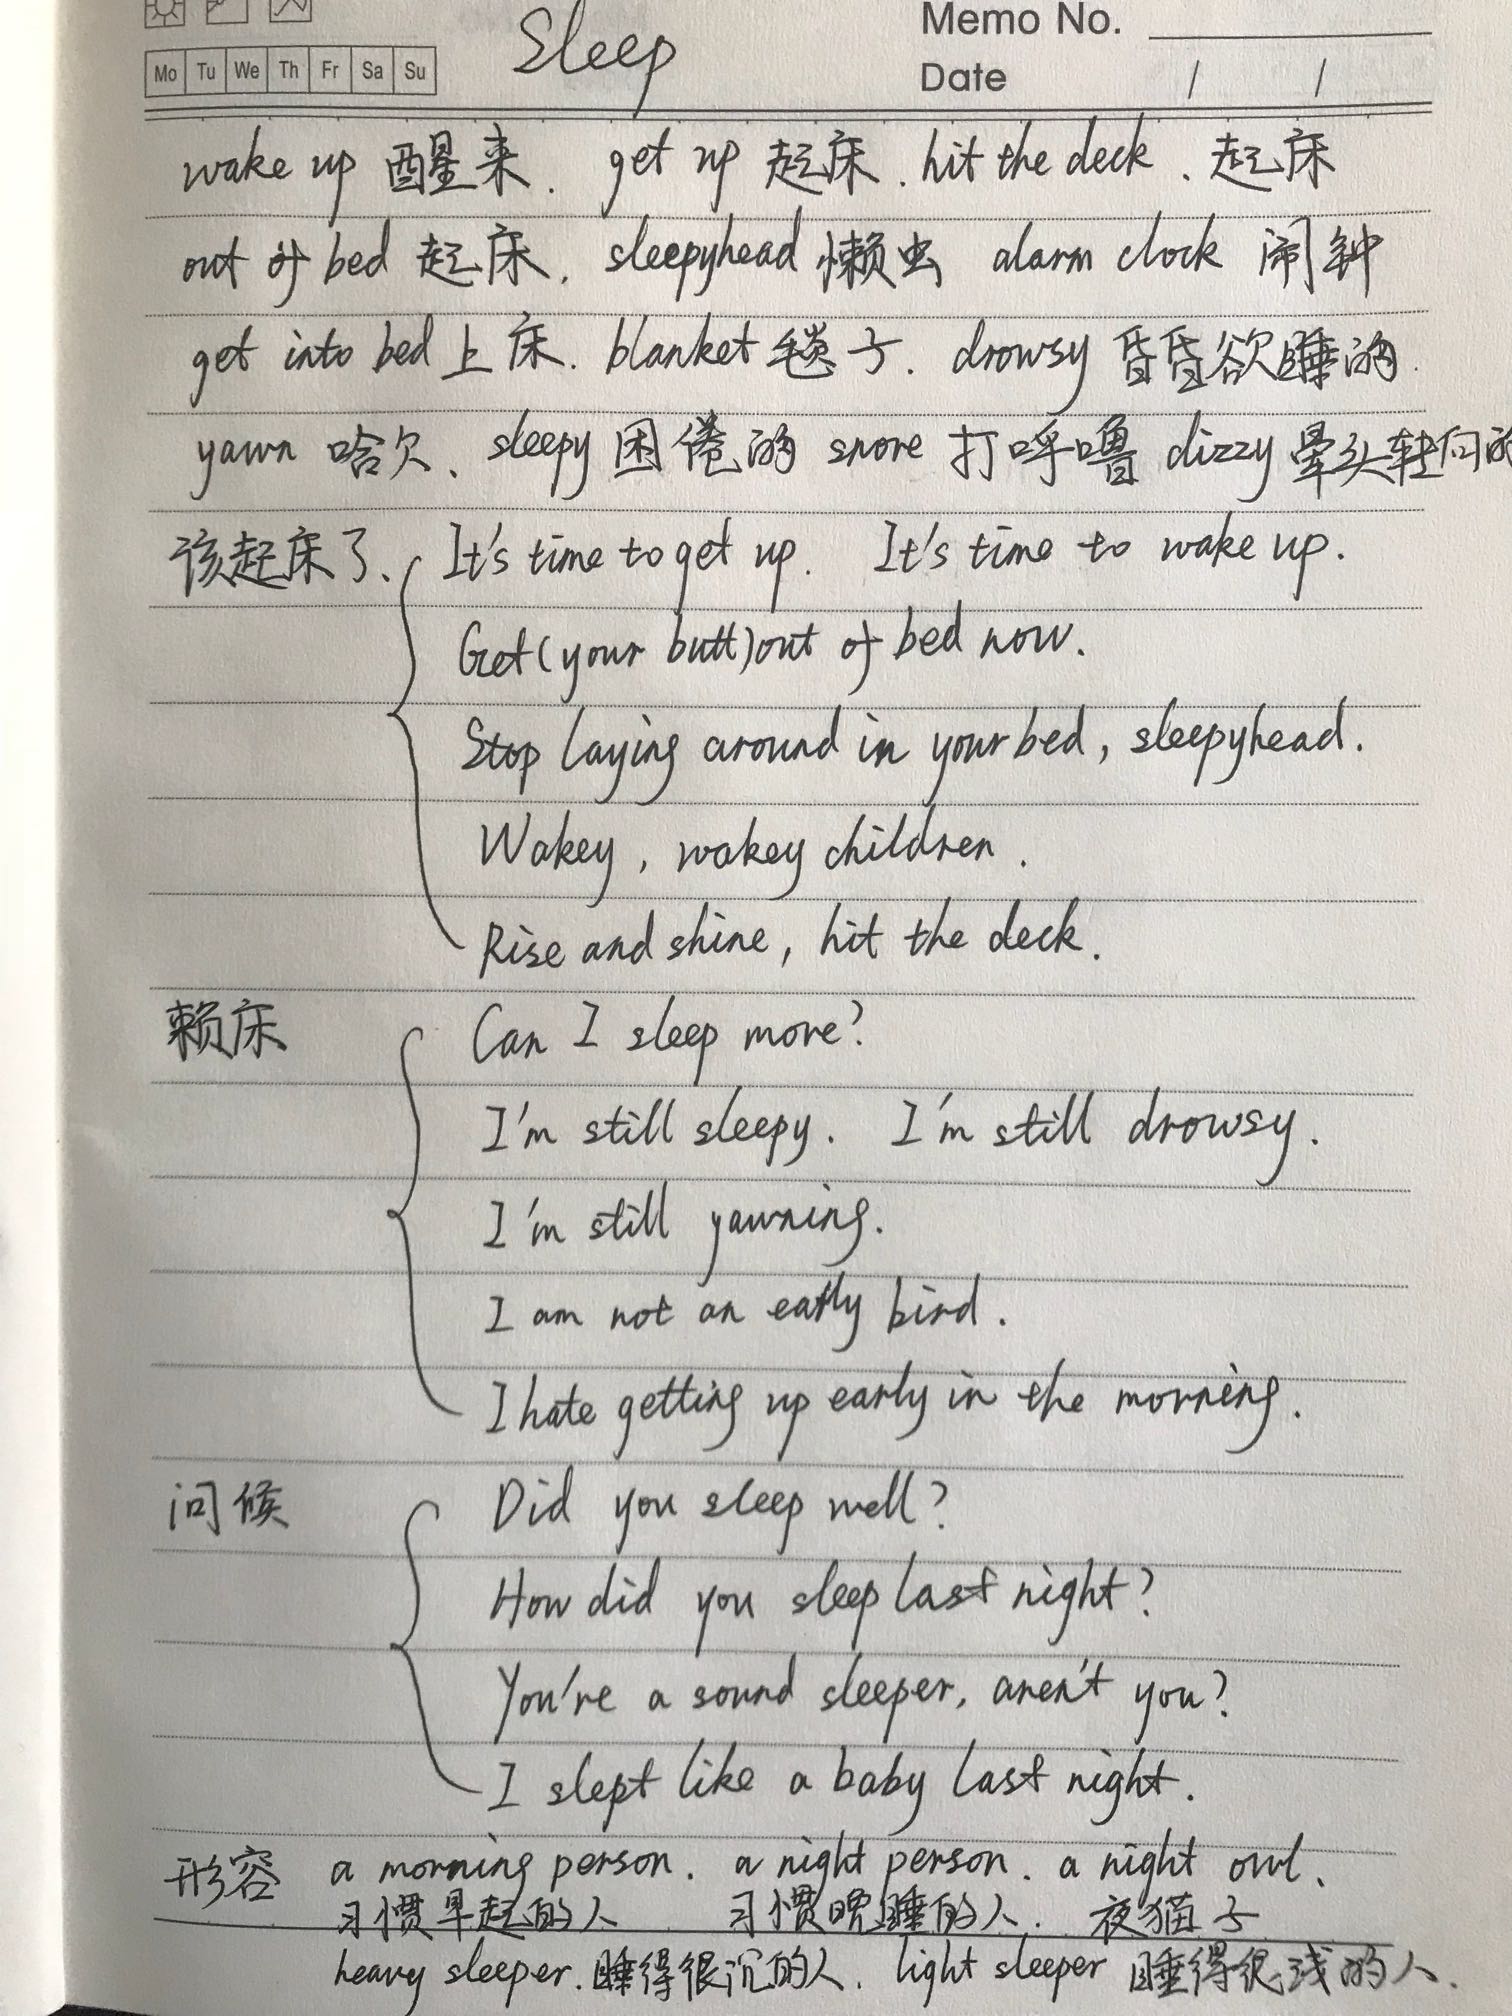 Sleep
Memo No.
Mo Tu We Th Fr Sa Su
Date / /
wake up 醒来. get up 起床. hit the deck、起床
out of bed 起床. sleepyhead 懒虫 alarm clock 闹钟
get into bed 上床. blanket 毯子. drowsy 昏昏欲睡的.
yawn 哈欠、sleepy 困倦的 snore 打呼噜 dizzy 晕头转向的
该起床了、It's time to get up. It's time to wake up.
Get (your butt) out of bed now.
Stop laying around in your bed, sleepyhead.
Wakey, wakey children.
Rise and shine, hit the deck.
赖床 Can I sleep more?
I'm still sleepy. I'm still drowsy.
I'm still yawning.
I am not an early bird.
I hate getting up early in the morning.
问候 Did you sleep well?
How did you sleep last night?
You're a sound sleeper, aren't you?
I slept like a baby last night.
形容 a morning person. a night person. a night owl.
习惯早起的人 习惯晚睡的人. 夜猫子
heavy sleeper. 睡得很沉的人. light sleeper 睡得很浅的人.